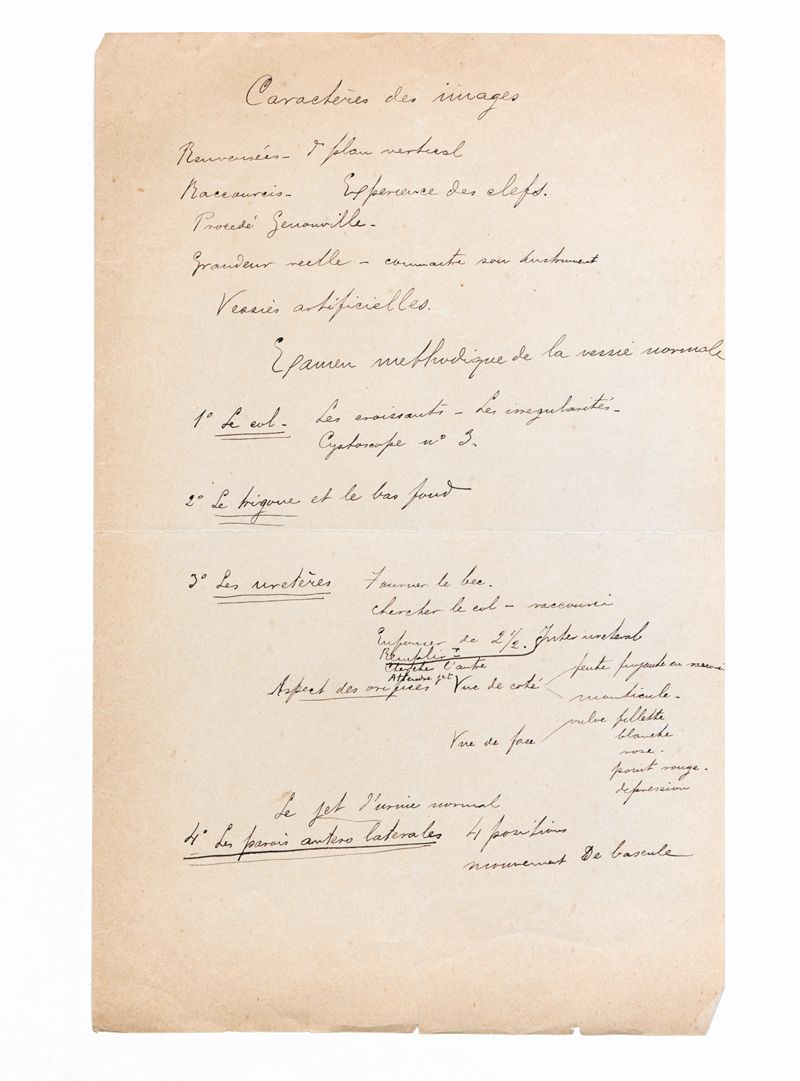 Caractères des images
Renversées - d plan vertical
Raccourcis - Experience des clefs.
Procedé Genouville -
Grandeur reelle - connaitre son instrument
Vessies artificielles.
Examen methodique de la vessie normale
1° Le col - Les croissants - Les irregularités -
Cystoscope n° 3.
2° Le trigone et le bas fond
3° Les uretères Tourner le bec.
chercher le col - raccourci
Enfoncer de 2 1/2. Inter ureteral
Remplir
Cherche l'autre
Attendre jet
Aspect des orifices Vue de coté fente fuyante en
monticule -
Vue de face vulve fillette
blanche
rose.
point rouge.
depression
Le jet d'urine normal
4° Les parois antero laterales 4 positions
mouvement De bascule